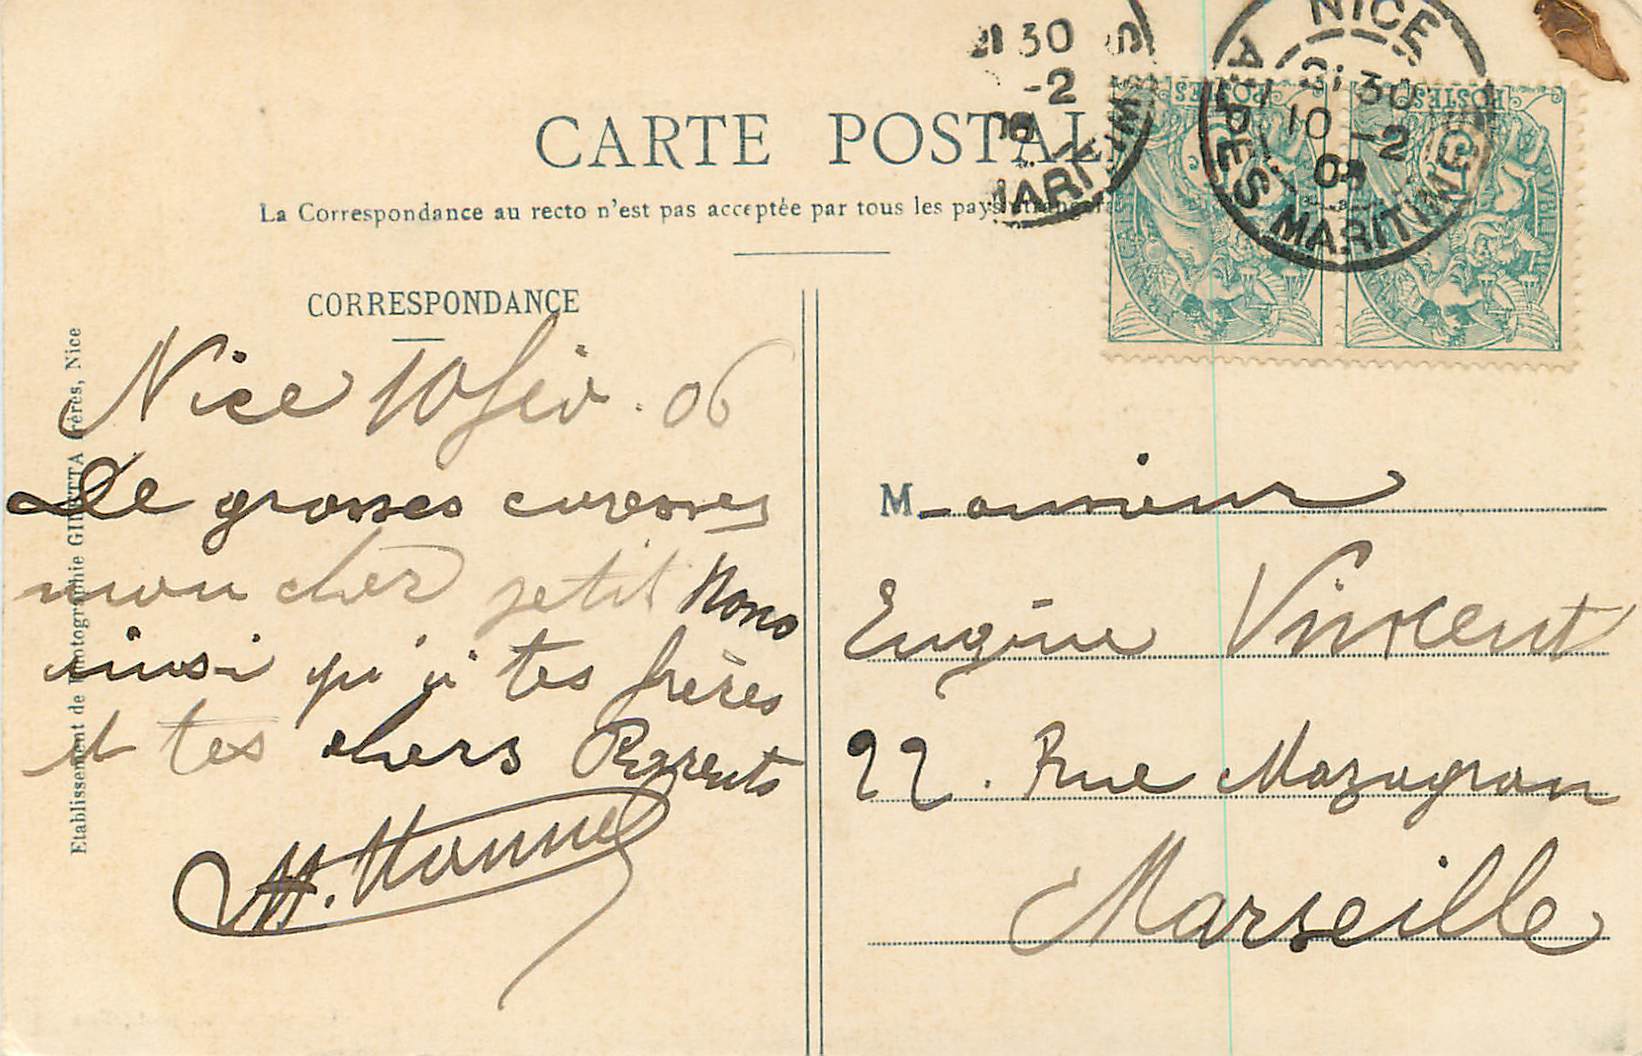 CARTE POSTALE
La Correspondance au recto n'est pas acceptée par tous les pays étrangers
CORRESPONDANCE
Nice 10 fév. 06
De grosses caresses
mon cher petit Nono
ainsi qu'à tes frères
et tes chers Parents
Etablissement de Photographie GILETTA frères, Nice
30
-2
MARITIMES
NICE
30
10 -2
06
ALPES MARITIMES
POSTES
POSTES
Monsieur
Eugène Vincent
22. Rue Mazagran
Marseille